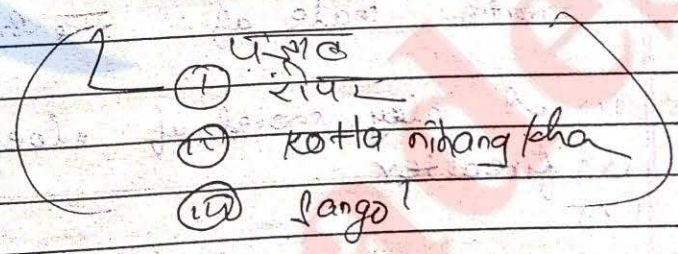 पंजाब
(i) रोपर
(ii) kotla nihang kha
(iii) Sangol